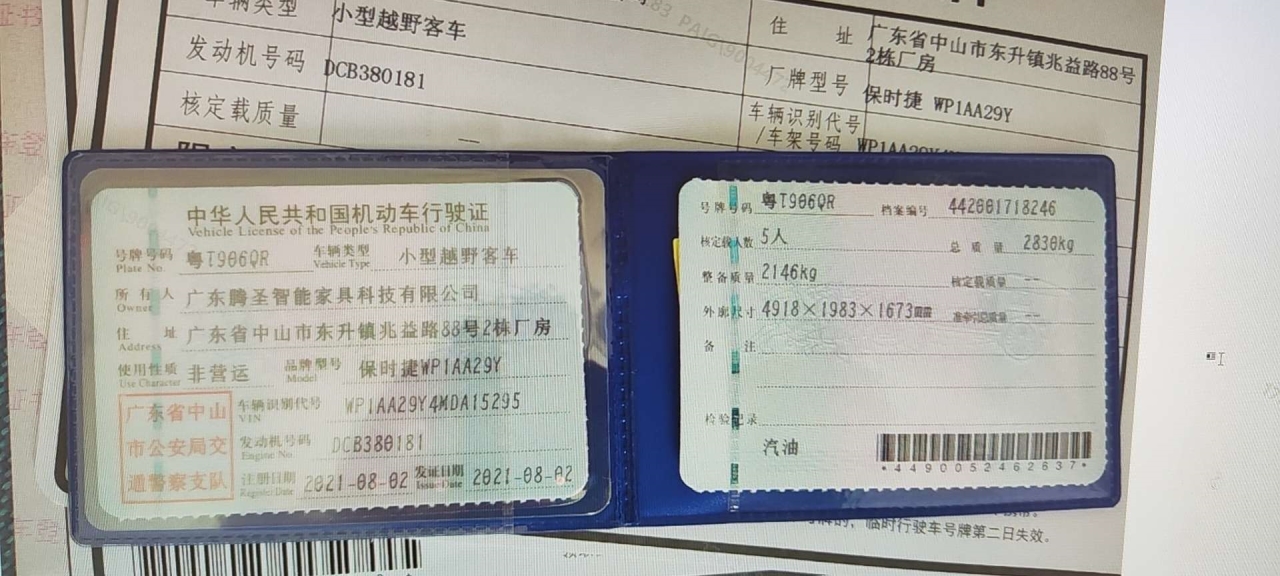 车辆类型 小型越野客车
住 址 广东省中山市东升镇兆益路88号
2栋厂房
发动机号码 DCB380181
厂牌型号 保时捷 WP1AA29Y
核定载质量 —
车辆识别代号
/车架号码
中华人民共和国机动车行驶证
Vehicle License of the People's Republic of China
号牌号码 粤T906QR 车辆类型 小型越野客车
Plate No. Vehicle Type
所有人 广东腾圣智能家具科技有限公司
Owner
住 址 广东省中山市东升镇兆益路88号2栋厂房
Address
使用性质 非营运 品牌型号 保时捷WP1AA29Y
Use Character Model
广东省中山
市公安局交
通警察支队
车辆识别代号 WP1AA29Y4MDA15295
VIN
发动机号码 DCB380181
Engine No.
注册日期 2021-08-02 发证日期 2021-08-02
Register Date Issue Date
号牌号码 粤T906QR 档案编号 442001718246
核定载人数 5人 总质量 2830kg
整备质量 2146kg 核定载质量 --
外廓尺寸 4918×1983×1673mm 准牵引总质量 --
备 注
检验记录
汽油
*4490052462637*
临时行驶车号牌第二日失效。